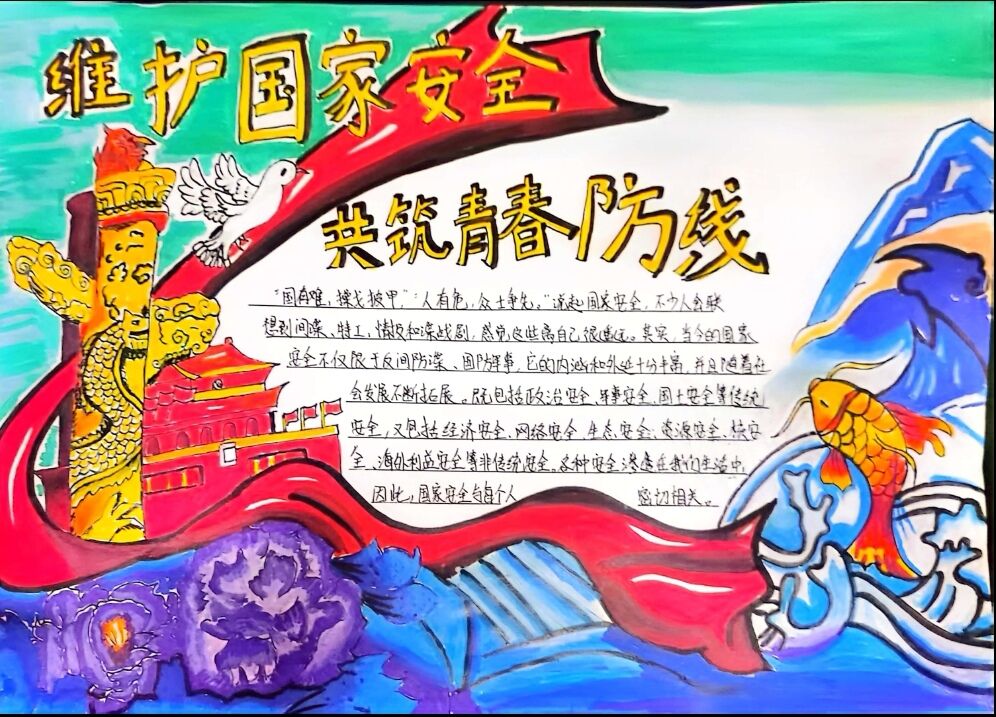 维护国家安全
共筑青春防线
"国有难，操戈披甲，""人有危，众士争先。"说起国家安全，不少人会联
想到间谍、特工、情报和谍战剧，感觉这些离自己很遥远。其实，当今的国家
安全不仅限于反间防谍、国防军事，它的内涵和外延十分丰富，并且随着社
会发展不断拓展。既包括政治安全、军事安全、国土安全等传统
安全，又包括经济安全、网络安全、生态安全、资源安全、核安
全、海外利益安全等非传统安全。各种安全渗透在我们生活中，
因此，国家安全与每个人 密切相关。